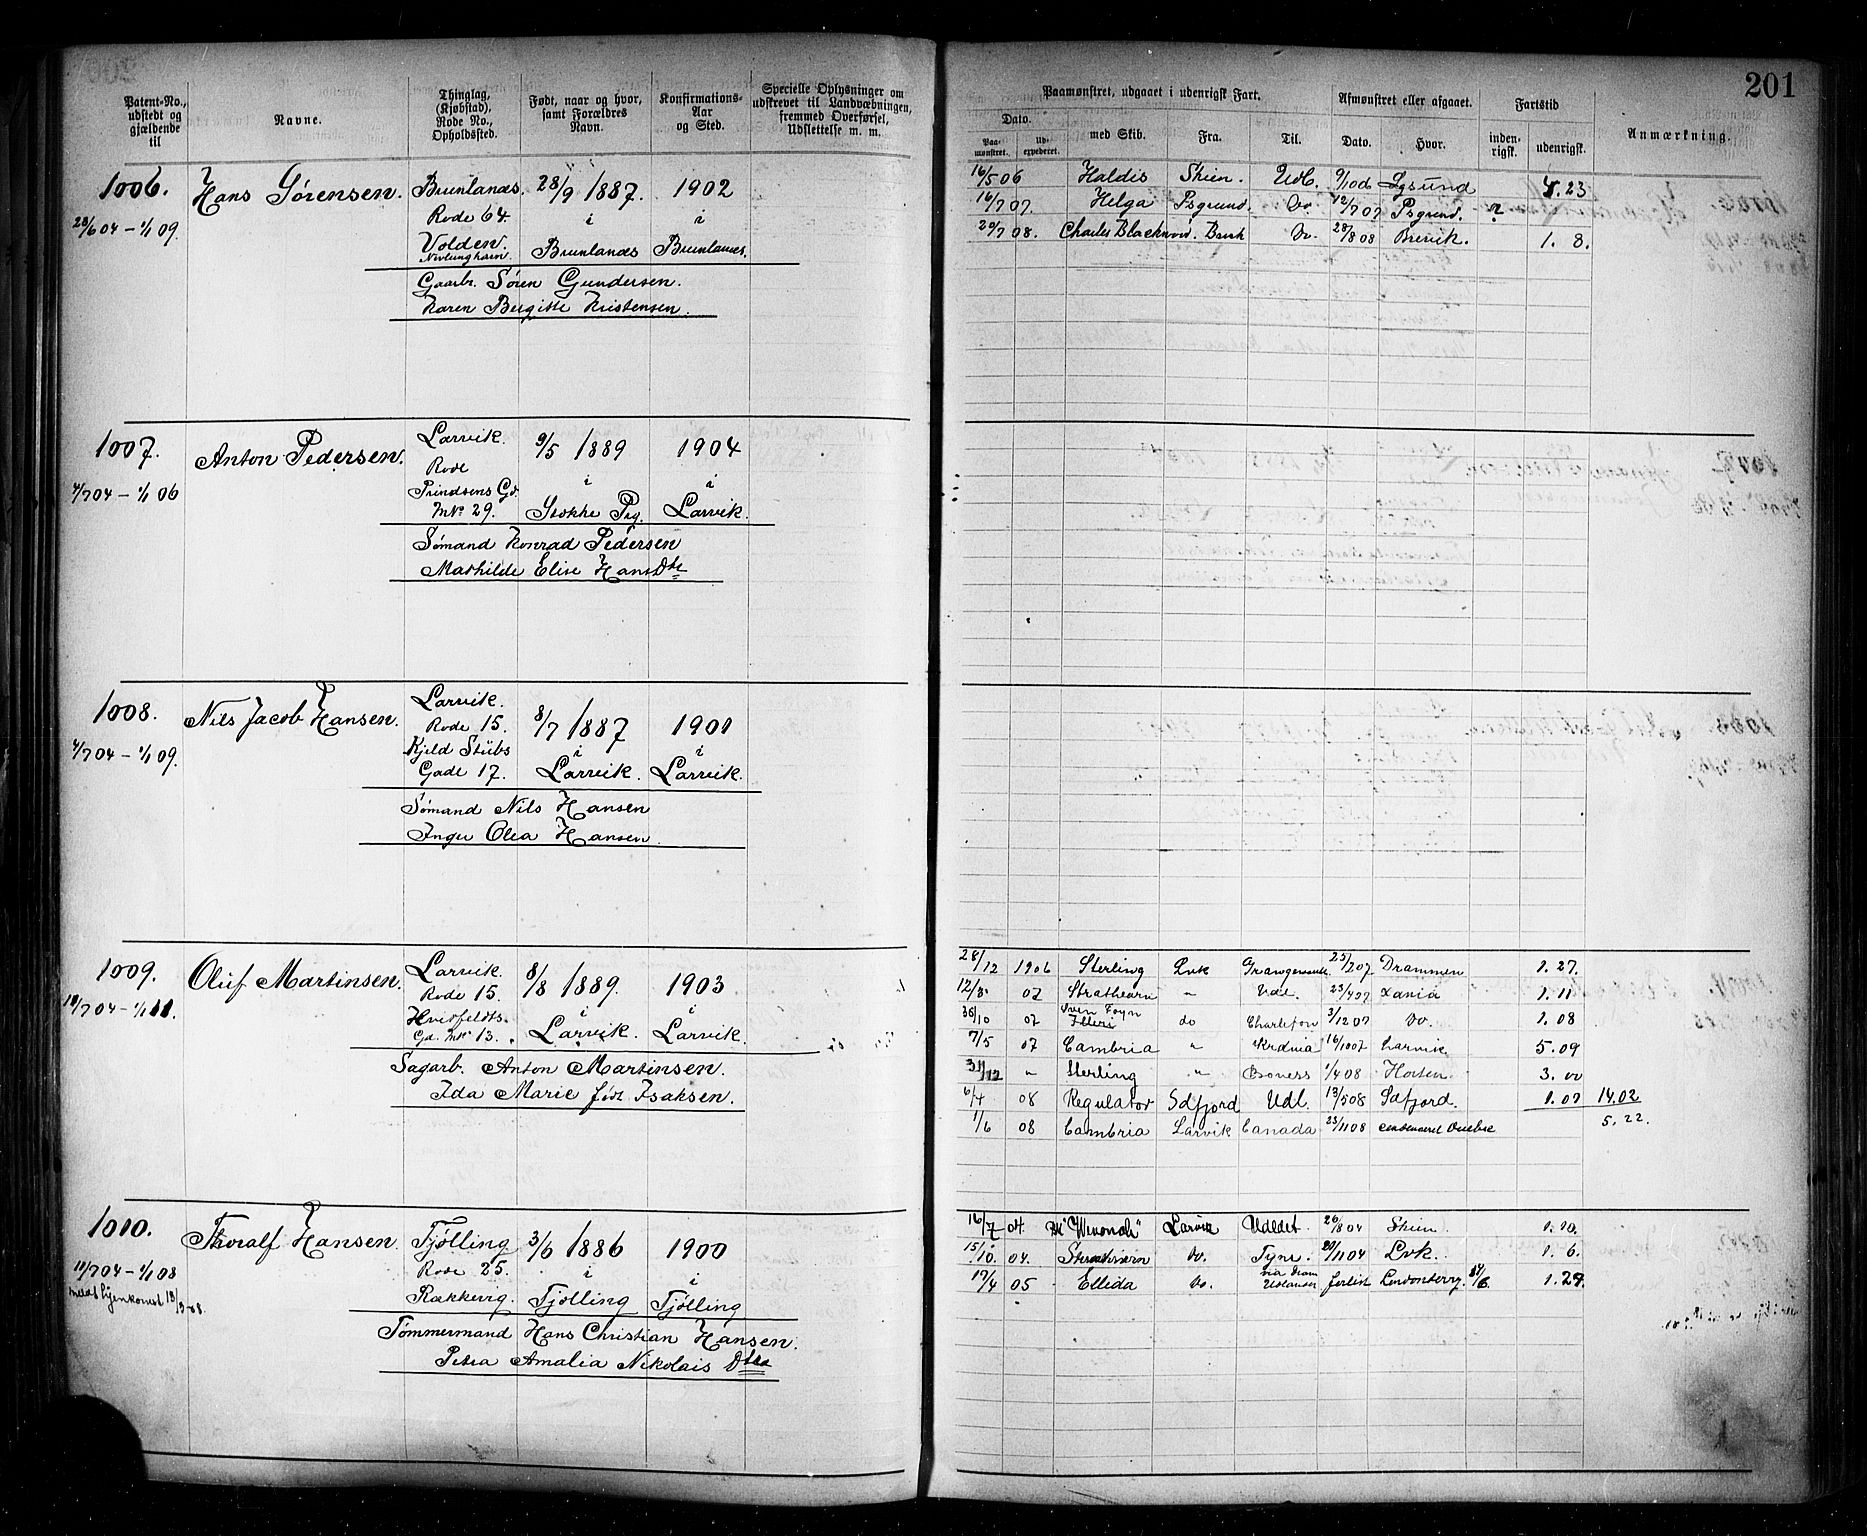 201
Patent-No., udstedt og gjældende til
Navne.
Thinglag, (Kjøbstad), Rode No., Opholdssted.
Født, naar og hvor, samt Forældres Navn.
Konfirmations-Aar og Sted.
Specielle Oplysninger om udskrevet til Landværnsbningen, fremmed Overførsel, Udslettelse m. m.
Paamønstret, udgaaet i udenrigsk Fart.
Dato.
Paa-mønstret.
Ud-expederet.
med Skib.
Fra.
Til.
Afmønstret eller afgaaet.
Dato.
Hvor.
Fartstid
inden-rigsk.
udenrigsk.
Anmærkning.
1006. Hans Sørensen. Brunlands. 28/9 1887. 1902
Rode 64 i i
28/6 04 – 1/1 09.
Volden. Brunlands Brunlanes.
Nevlunghavn.
Gaarbr. Søren Gundersen.
Karen Birgitte Kristensen.
16/5 06 Haldis Skien. Udl. 9/10 06 Lysund 4.23
14/7 07. Helga Psgrund. Do 12/7 07 Psgrund. ?
20/7 08. Charles Do. 28/8 08 Brevik. 1. 8.
1007. Anton Pedersen. Larvik. 9/5 1889 1904
Rode i i
4/7 04 – 1/1 06 Prindsens Gd.
MNo 29. Stokke Pg. Larvik.
Sømand Konrad Pedersen
Mathilde Elise HansDtr
1008. Nils Jacob Hansen. Larvik. 8/7 1887 1901
Rode 15.
4/7 04 – 1/1 09. Kjeld Stübs i i
Gade 17. Larvik. Larvik.
Sømand Nils Hansen
Inger Olea Hansen.
1009. Oluf Martinsen. Larvik. 8/8 1889. 1903
Rode 15.
/7 04 – 1/1 11. Hvitfeldts. i i
Gd. MNo 13. Larvik. Larvik.
Sagarb. Anton Martinsen.
Ida Marie født Isaksen.
28/12 1906 Sterling Lvk 25/2 07 Drammen 1.27.
12/3 07 Strathearn " Udl. 23/4 07 Xania 1.11
30/10 07 Sven Foyn do Charlefon 3/12 07 Do. 1.08
7/5 07 Cambria " Krdnia 16/10 07 Larvik 5.09
31/12 " Sterling " Boness 1/4 08 Horten. 3.00
6/4 08 Regulator Sdfjord Udl. 13/5 08 Sdfjord. 1.07 14.02
1/6 08 Cambria Larvik Canada 23/11 08 5.22.
1010. Thoralf Hansen. Tjølling 3/6 1886 1900
Rode 25. i i
/7 04 – 1/1 08
Rækkevig. Tjølling Tjølling
Tømmermand Hans Christian Hansen.
Petra Amalia Nikolais Dtra
16/7 04. Larvik Udldet. 26/8 04 Skien 1.10.
15/10. 04. Do. Tyne. 04 Lvk. 1. 6.
17/4 05 Ellida Do. forlist Londonderry. 1.27.